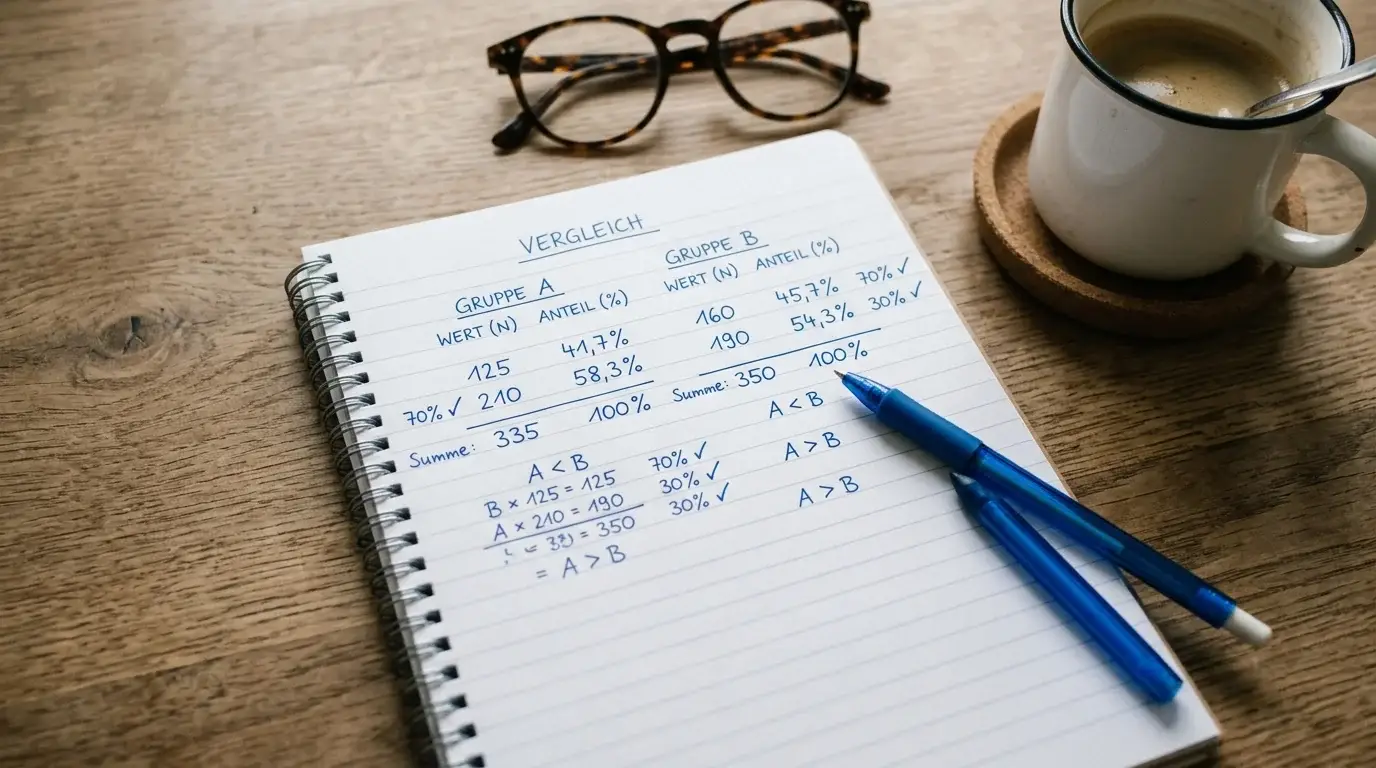 VERGLEICH
GRUPPE A
WERT (N) ANTEIL (%)
125 41,7%
70% ✓ 210 58,3%
Summe: 335 100%
GRUPPE B
WERT (N) ANTEIL (%)
160 45,7% 70% ✓
190 54,3% 30% ✓
Summe: 350 100%
A < B
B × 125 = 125 70% ✓
A × 210 = 190 30% ✓
= 350 30% ✓
= A > B
A < B
A > B
A > B